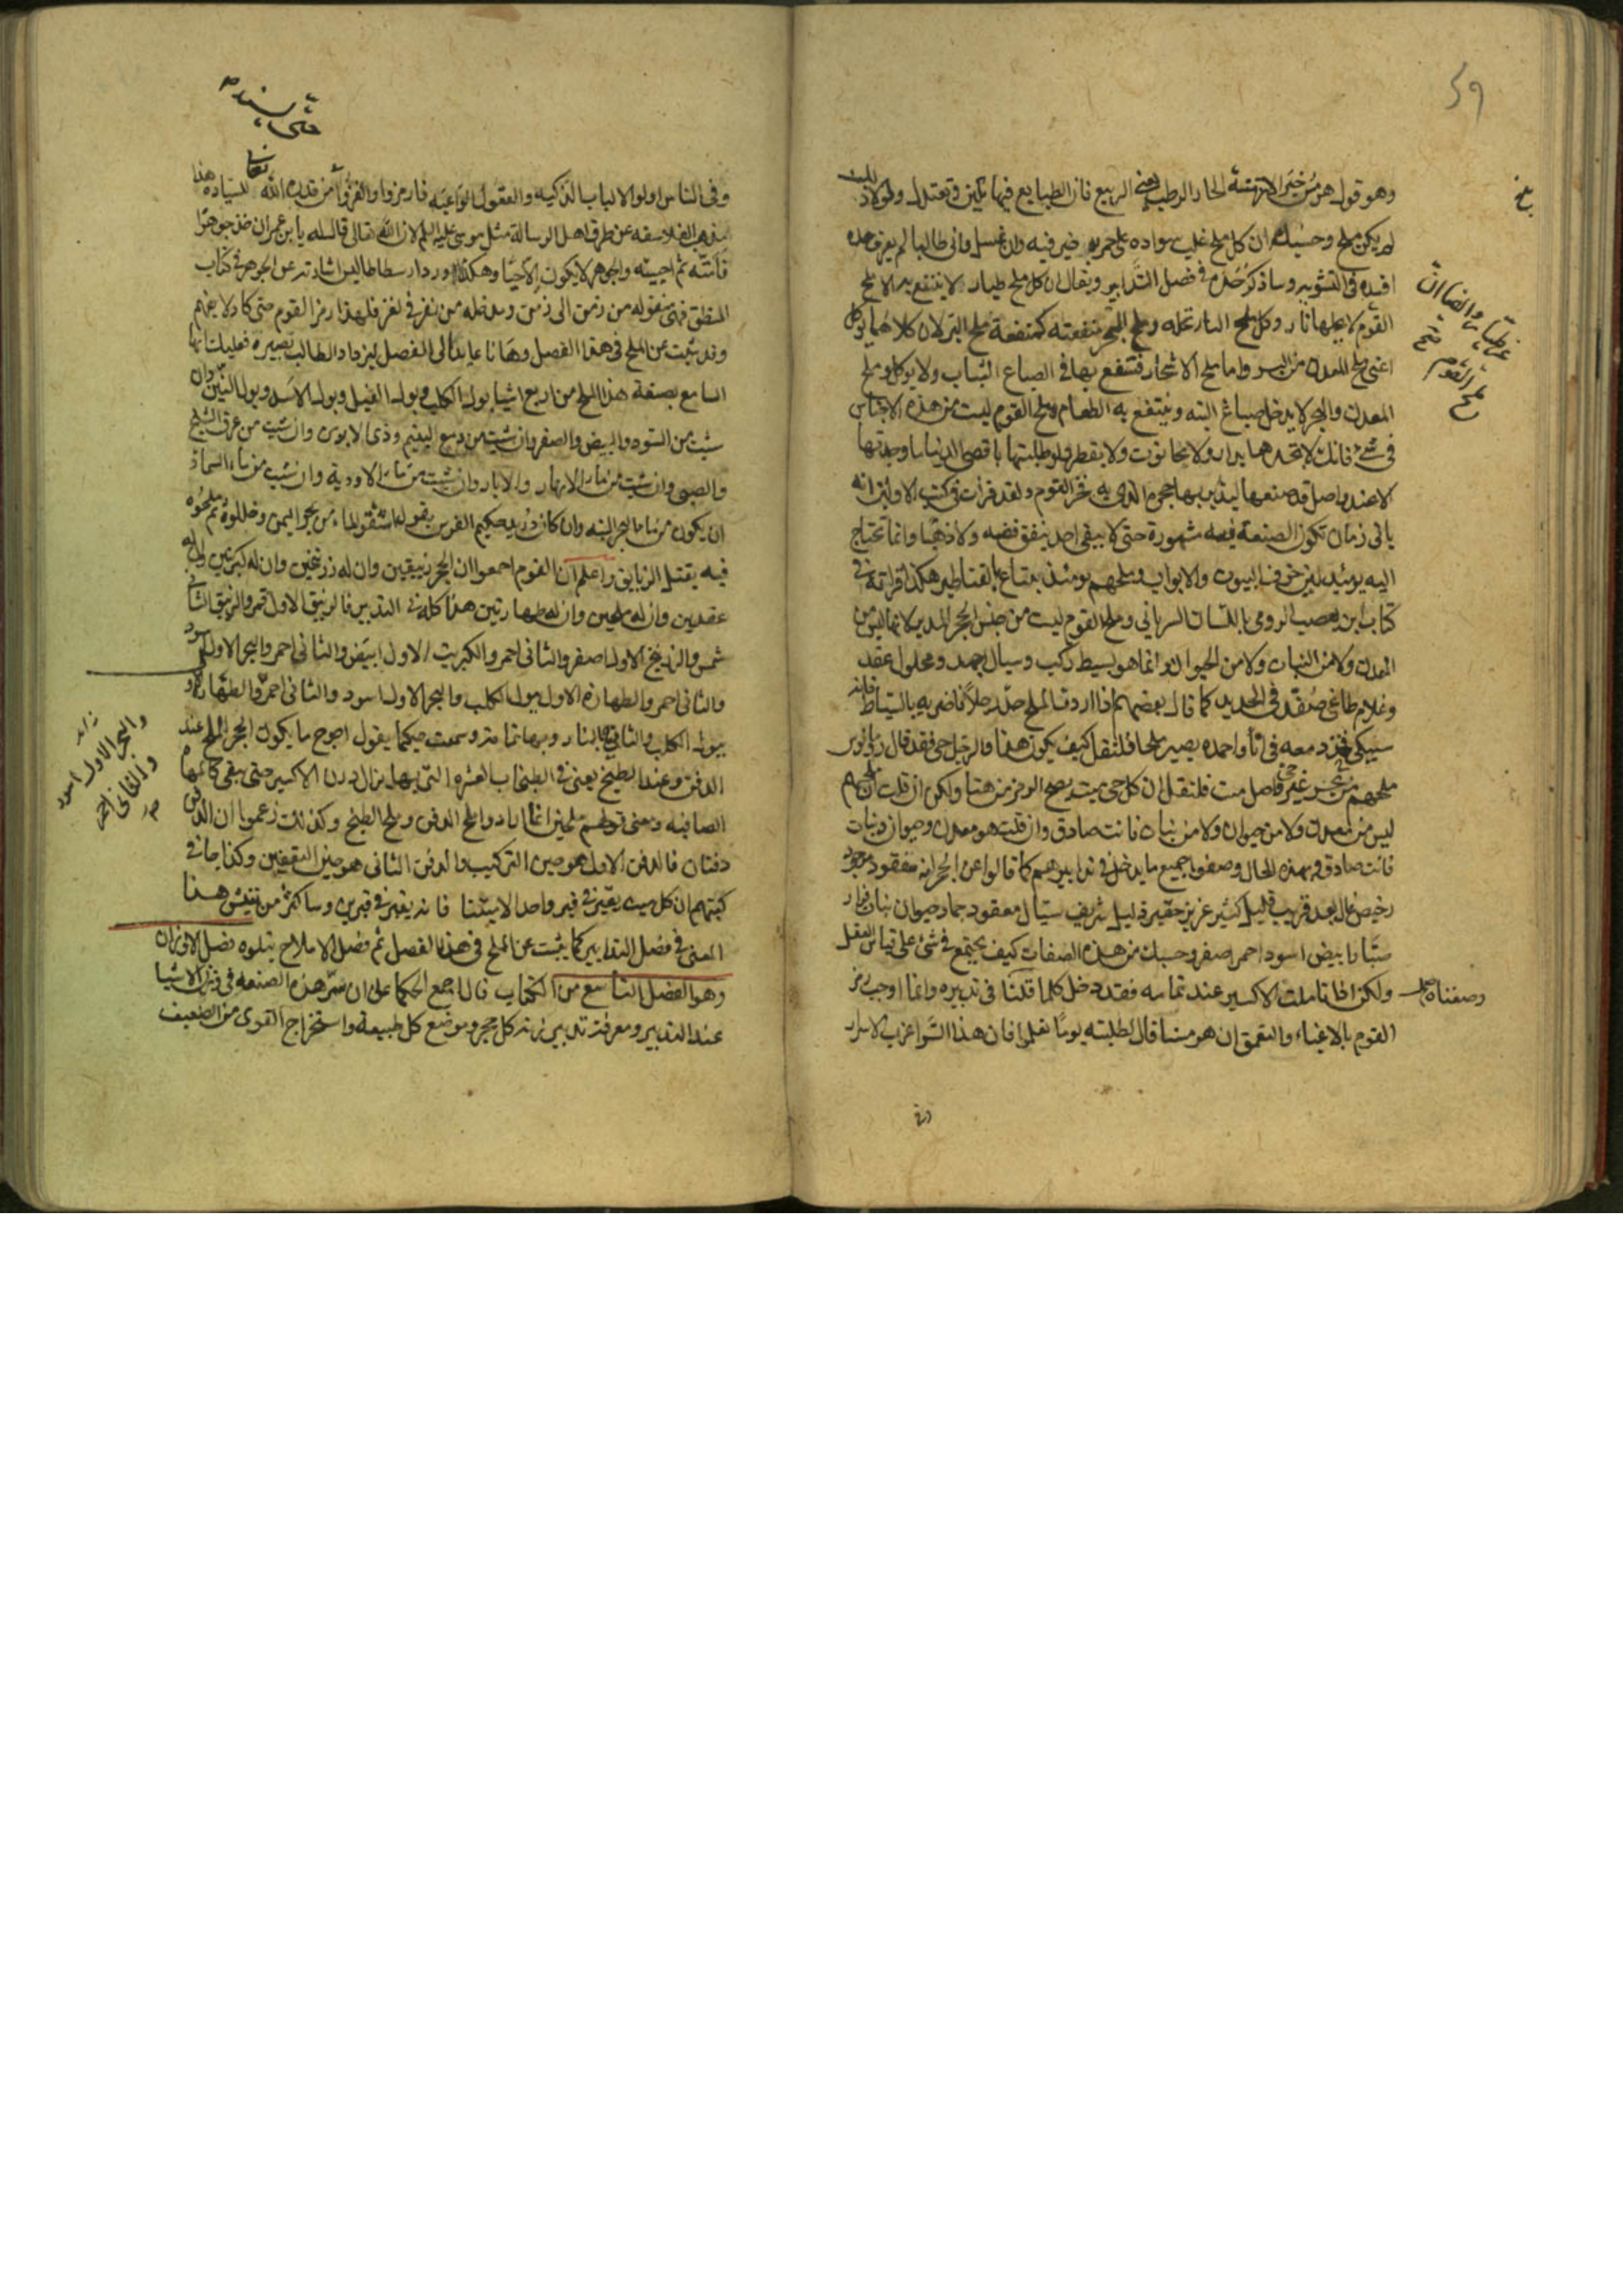 وهو قول هرمس خير الازمنة الحار الرطب يعني الربيع فان الطبايع فيها تلين وتعتدل ولولا
لم يكن ملح وحسبك ان كل ملح غلب سواده على حمرته خير فيه وان غسل وانى طالبا لم يعرف حده
افسده في التشوير وساذكر حله في فصل التدابير ويقال ان كل ملح طيار لا ينتفع به الا ملح
القوم لا يحلها نار وكل ملح النار تحله وملح البحر منفعته كمنفعة ملح البر لان كلاهما يوكل
اعني ملح المعدن من البر واما ملح الاشجار فتنتفع بها في الصباغ الثياب ولا يوكل وملح
المعدن والبحر لا يدخل صباغ البته وينتفع به الطعام وملح القوم ليست من هذه الاجناس
في شي فانك لا تجدها بدار ولا بحانوت ولا بقطر ولو طلبتها باقصى الدنيا ما وجدتها
الا عند واصل قد صنعها ليذيب بها حجره الذي به فخر القوم ولقد قرات في كتب الاولين انه
ياتي زمان تكون الصنعة فيه مشهورة حتى لا يبقى احد ينفق فضه ولا ذهبا وانما تحتاج
اليه يومئذ لتزخرف البيوت والابواب وملحهم يومئذ يبتاع بالقناطير هكذا قراته في
كتاب ابن وصيب الرومي باللسان السرياني وملح القوم ليست من جنس الحجر المدبر لانها ليس من
المعدن ولا من النبات ولا من الحيوان وانما هو بسيط ركيب وسيال جمد ومحلول عقد
وغلام طاغي صفد في الحديد كما قال بعضهم اذا اردت الملح خذ رجلا فاضربه بالسياط فانه
سيبكي فخذ دمعه في اناء واحمده يصير ملحا فلا تقل كيف يكون هذا فالرجل حي فقد قال
ملحهم من حجر غير فاصل ميت فلا تقل ان كل حي ميت يصح الرمز من هنا ولكن ان قلت ان ملحهم
ليس من معدن ولا من حيوان ولا من نبات فانت صادق وان قلت هو معدن وحيوان ونبات
فانت صادق وبهذه الحال وصفوا جميع ما يدخل في تدابيرهم كما قالوا عن الحجر انه مفقود موجود
رخيص غال بعيد قريب قليل كثير عزيز حقير ذليل شريف سيال معقود جماد حيوان نبات فرار
صبار ابيض اسود احمر اصفر وحسبك من هذه الصفات كيف يجتمع في شي على قياس العقل
ولكن اذا تاملت الاكسير عند تمامه فقد دخل كلما قلنا في تدبيره وانما اوجب رمز
القوم بالاغياء والتعمق ان هرمسا قال لطلبته يوما تعلموا فان هذا السر اعزب الاسرار
بلغ
ملح القوم
وصفناه
وفي الناس اولو الالباب الذكيه والعقول الواعيه فارمزوا والغزوا من قدره الله تعالى للسياده هذا
مذهب الفلاسفه عن طرق اهل الرسالة مثل موسى عليه السلم لان الله تعالى قال له يا ابن عمران خذ جوهرا
فامته ثم احييته والجوهر لا يكون الا حيا وهكذا اورد ارسطاطاليس اشارته عن الجوهر في كتاب
المنطق فهي منقوله من زمن الى زمن ومدخله من لغز في لغز فلهذا رمز القوم حتى كاد لا يفهم
وقد بينت عن الملح في هذا الفصل وها انا عايد الى الفصل ليزداد الطالب بصيره فعليك ايها
السامع بصفة هذا الملح من اربع اشيا بول الكلب وبول الفيل وبول الاسد وبول التنين وان
شيت من السود والبيض والصفر وان شيت من دمع اليتيم وذي الابوين وان شيت من عرق الشيخ
والصبي وان شيت من ماء الانهار والابار وان شيت من ماء الاودية وان شيت من ماء السماء
ان يكون من ماء البحر البته وان كان دريد حكيم الفرس يقول استقوا الماء من بحر اليمن وخللوه ثم ملحوه
فيه يقتل الزيابق واعلم ان القوم اجمعوا ان الحجر زيبقين وان له زرنيخين وان له كبريتين وان له
عقدين وان له ملحين وان له طهارتين هذا كله في التدبير فالزيبق الاول قمر والزيبق الثاني
شمس والزرنيخ الاول اصفر والثاني احمر والكبريت الاول ابيض والثاني احمر والبحر الاول اسود
والثاني احمر والطهارة الاول ببول الكلب والبحر الاول اسود والثاني احمر والطهارة
ببول الكلب والثاني بالنار وبها تمامه وسمعت حكيما يقول احوج ما يكون الحجر للملح عند
الدفن وعند الطبخ يعني في الطبخات العشره التي بها يزال درن الاكسير حتى يبقى كالمها
الصافيه ومعنى قولهم ملحين انما ارادوا ملح الدفن وملح الطبخ وكذلك زعموا ان الدفن
دفنان فالدفن الاول هو حين التركيب والدفن الثاني هو حين التعفين وكذا جا في
كتبهم ان كل ميت يقبر في قبر واحد الا ميتنا فانه يقبر في قبرين وساكثر من تفتيش هذا
المعنى في فصل التدابير كما بينت عن الملح في هذا الفصل ثم فصل الاملاح يتلوه فصل الاوزان
وهو الفصل التاسع من الكتاب قال اجمع الحكما على ان سر هذه الصنعه في وزن الاشيا
عند التدبير ومعرفة تدبير زنة كل حجر وموضع كل طبيعة واستخراج القوى من الضعيف
والبحر الاول اسود
والثاني احمر